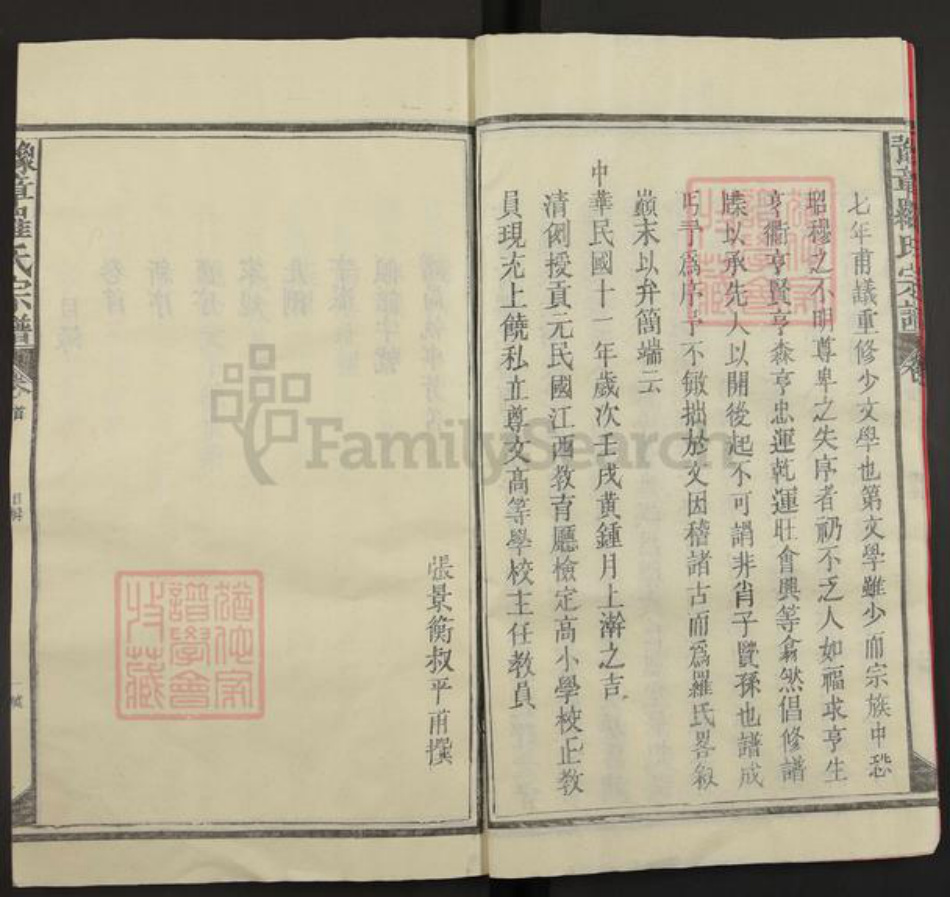 豫章羅氏宗譜
七年甫議重修少文學也第文學雖少而宗族中恐
昭穆之不明尊卑之失序者礽不乏人如福求亨生
亨衢亨賢亨森亨忠運乾運旺會興等翕然倡修譜
牒以承先人以開後起不可謂非肖子賢孫也譜成
丐予爲序予不辭拙於文因稽諸古而爲羅氏畧敘
巔末以弁簡端云
中華民國十一年歲次壬戌黃鍾月上澣之吉
清例授貢元民國江西教育廳檢定高小學校正教
員現充上饒私立尊文高等學校主任教員
張景衡叔平甫撰
豫章羅氏宗譜
卷首
FamilySearch
猶他家
譜學會
收藏
猶他家
譜學會
收藏